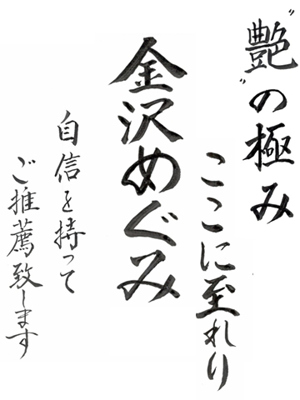 "艶"の極み
ここに至れり
金沢めぐみ
自信を持って
ご推薦致します